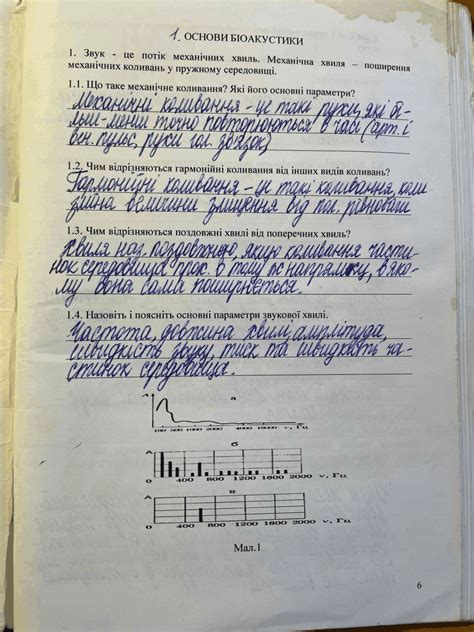 1. ОСНОВИ БІОАКУСТИКИ
1. Звук - це потік механічних хвиль. Механічна хвиля – поширення
механічних коливань у пружному середовищі.
1.1. Що таке механічне коливання? Які його основні параметри?
Механічні коливання - це такі рухи, які бі-
льш-менш точно повторюються в часі (арт. і
вен. пульс, рухи гол. зв'язок)
1.2. Чим відрізняються гармонійні коливання від інших видів коливань?
Гармонічні коливання - це такі коливання, коли
зміна величини зміщення від пол. рівноваги
1.3. Чим відрізняються поздовжні хвилі від поперечних хвиль?
Хвиля наз. поздовжною, якщо коливання части-
нок середовища в тому ж напрямку, в яко-
му вона сама поширюється.
1.4. Назовіть і поясніть основні параметри звукової хвилі.
Частота, довжина хвилі, амплітуда,
швидкість звуку, тиск та швидкість ча-
стинок середовища.
а
A
100 500 1000 2000 4000 10000 ν, Гц
б
A
0 400 800 1200 1600 2000 ν, Гц
в
A
0 400 800 1200 1600 2000 ν, Гц
Мал.1
6